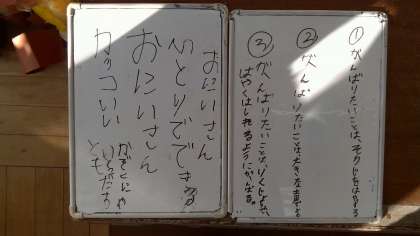 ① がんばりたいことは、そうじをがんばる
② がんばりたいことは大きな声
③ がんばりたいことは、りくじょうで、
はやくはしれるようにがんばる。
おにいさん
ひとりでできる
おにいさん
かっこいい
かぞくにや
とも